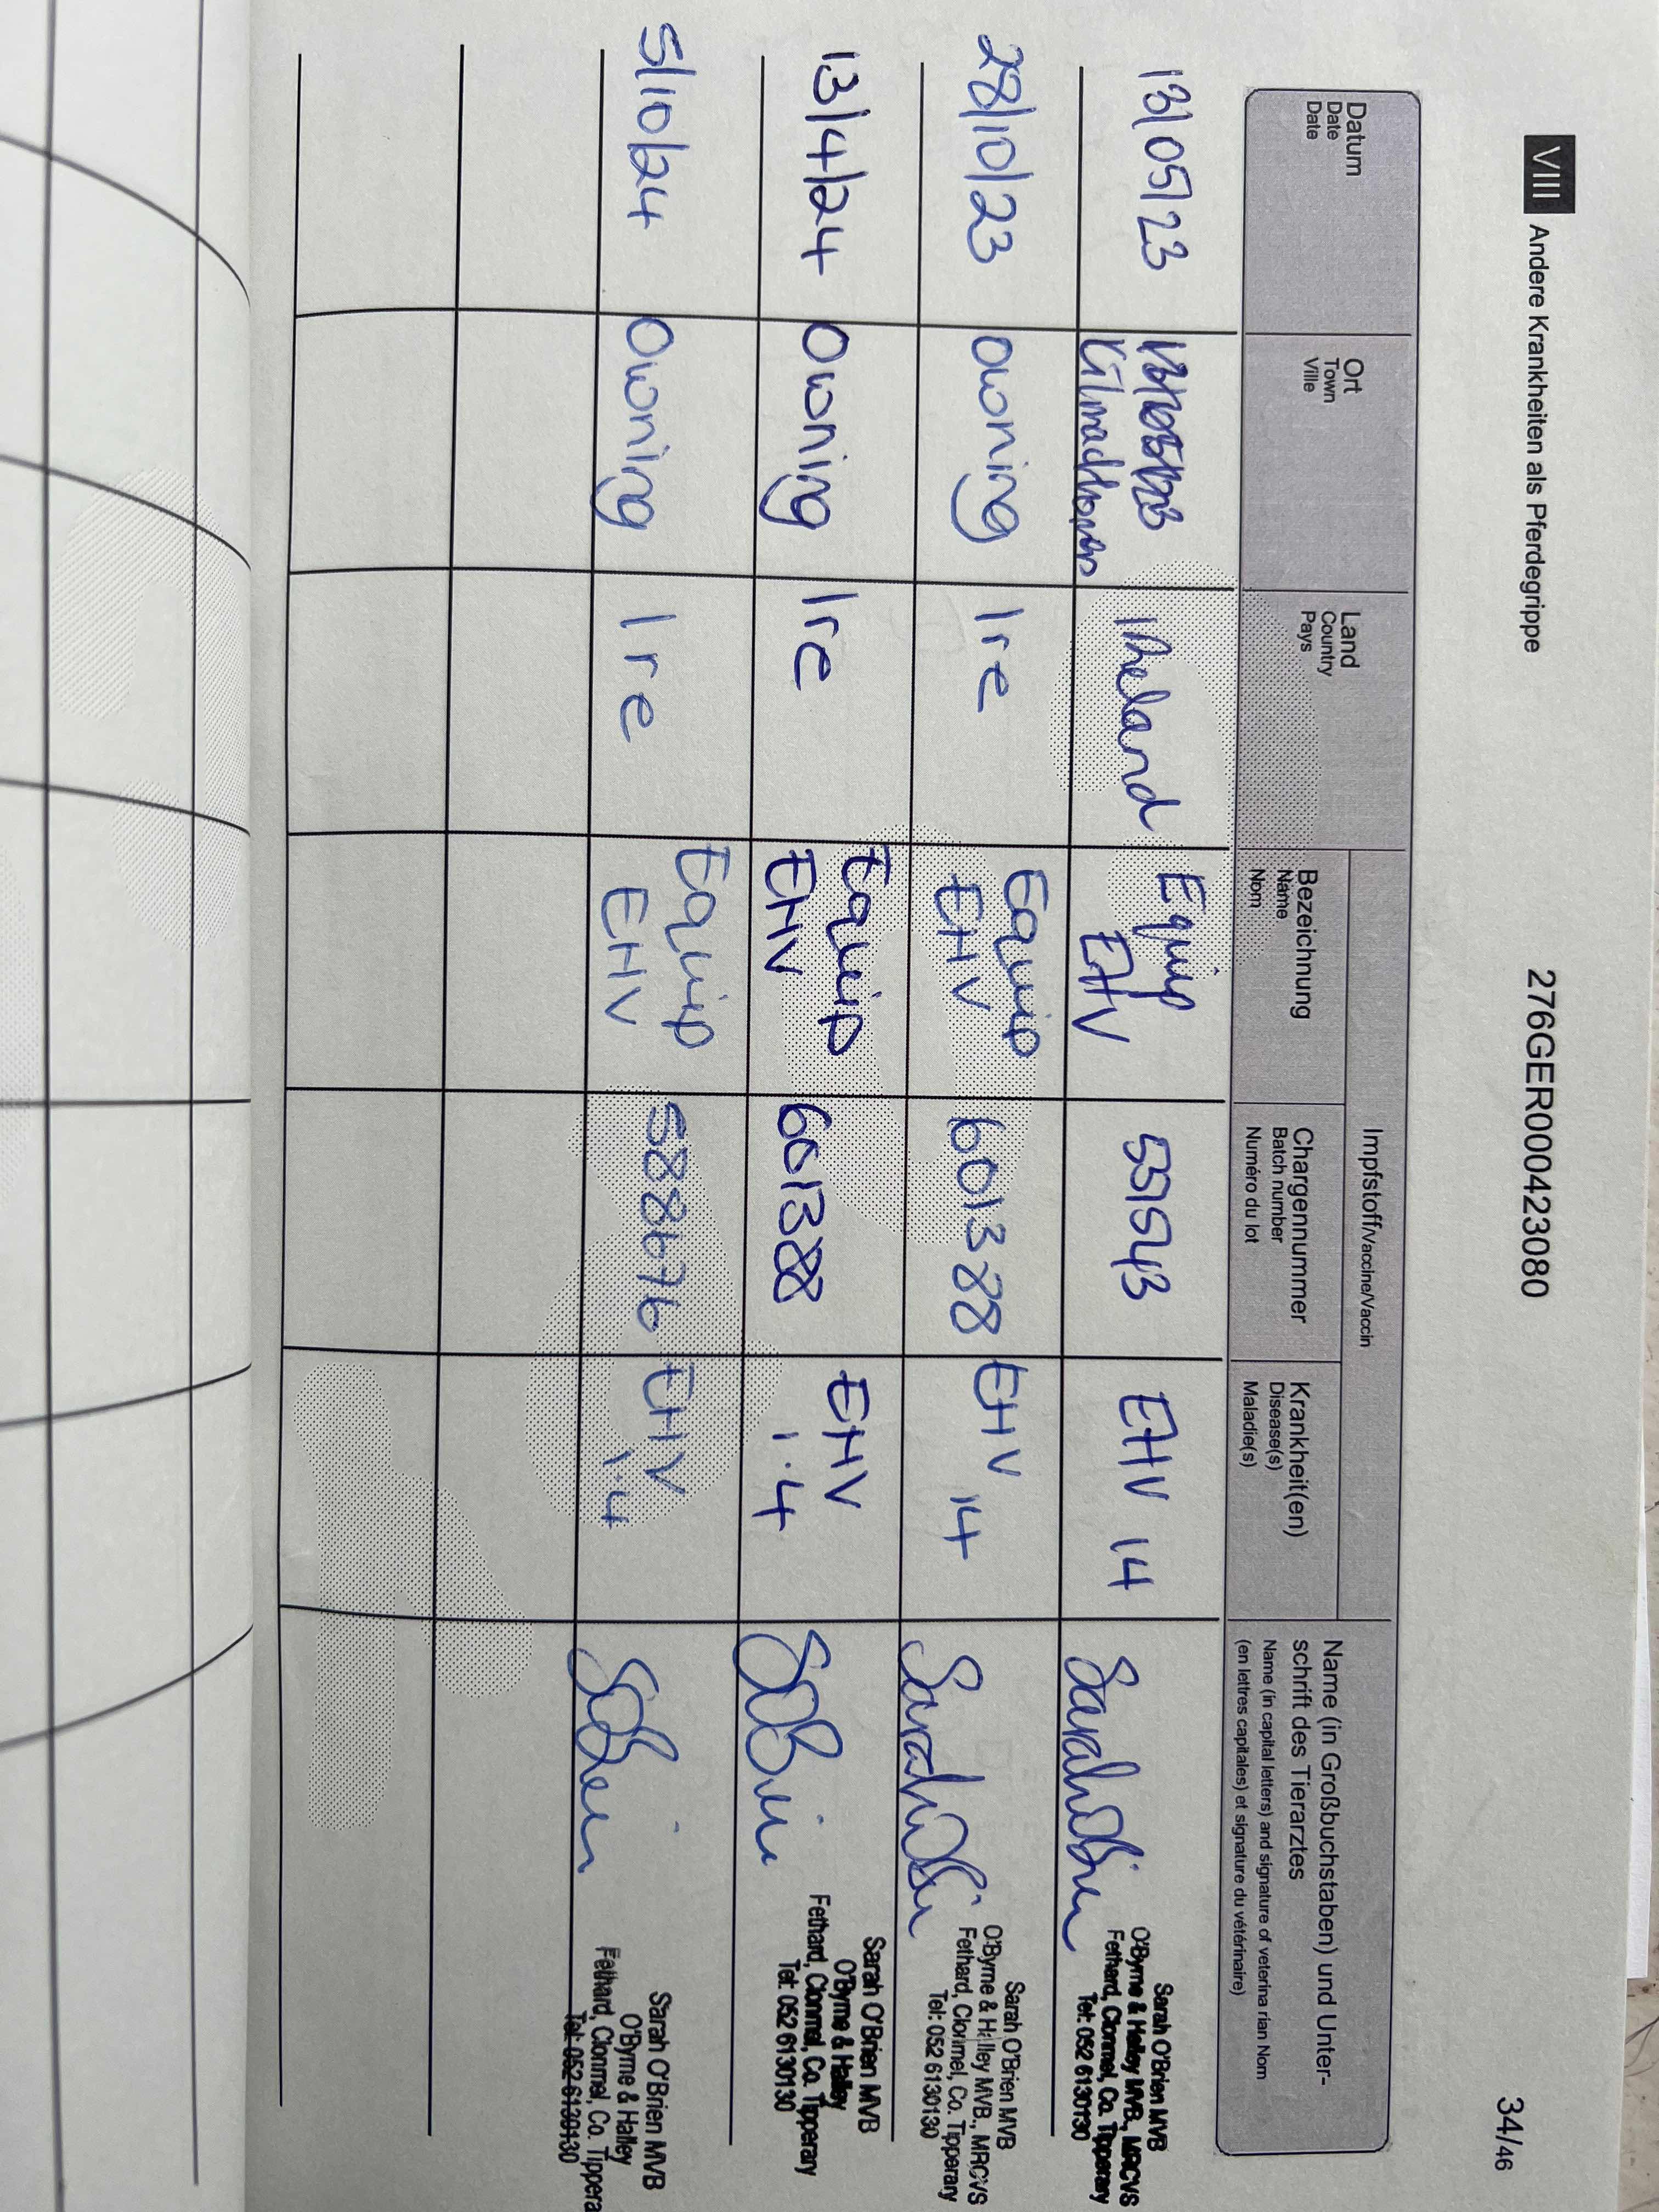 VIII Andere Krankheiten als Pferdegrippe 276GER000423080 34/46
Datum
Date
Date
Ort
Town
Ville
Land
Country
Pays
Impfstoff/Vaccine/Vaccin
Bezeichnung
Name
Nom
Chargennummer
Batch number
Numéro du lot
Krankheit(en)
Disease(s)
Maladie(s)
Name (in Großbuchstaben) und Unter-
schrift des Tierarztes
Name (in capital letters) and signature of veterina rian Nom
(en lettres capitales) et signature du vétérinaire)
13/05/23
Ireland
Equip
EHV
551543
EHV 14
Sarah O'Brien
Sarah O'Brien MVB
O'Byrne & Halley MVB., MRCVS
Fethard, Clonmel, Co. Tipperary
Tel: 052 6130130
28/10/23
Owning
Ire
Equip
EHV
601388
EHV
14
Sarah O'Brien
Sarah O'Brien MVB
O'Byrne & Halley MVB., MRCVS
Fethard, Clonmel, Co. Tipperary
Tel: 052 6130130
13/4/24
Owning
Ire
Equip
EHV
601388
EHV
1.4
SOBrien
Sarah O'Brien MVB
O'Byrne & Halley
Fethard, Clonmel, Co. Tipperary
Tel: 052 6130130
5/10/24
Owning
Ire
Equip
EHV
588676
EHV
1.4
SOBrien
Sarah O'Brien MVB
O'Byrne & Halley
Fethard, Clonmel, Co. Tippera
Tel: 052 6130130